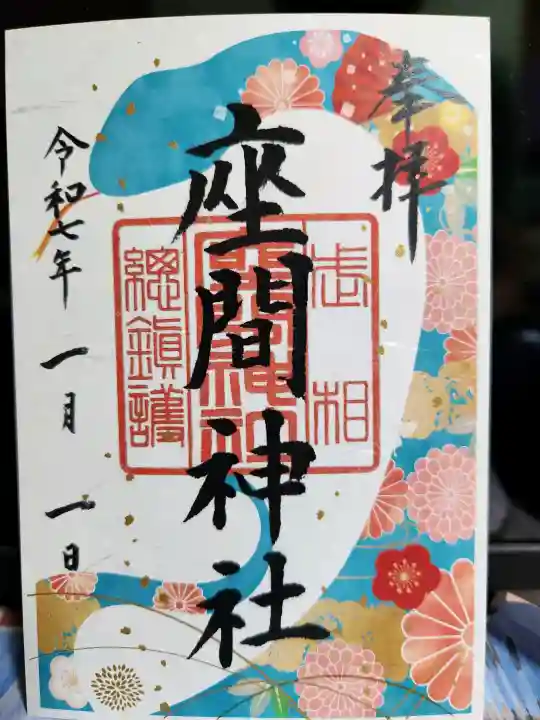 奉拝
座間神社
相武
座間神社
總鎮護
令和七年 一月 一日